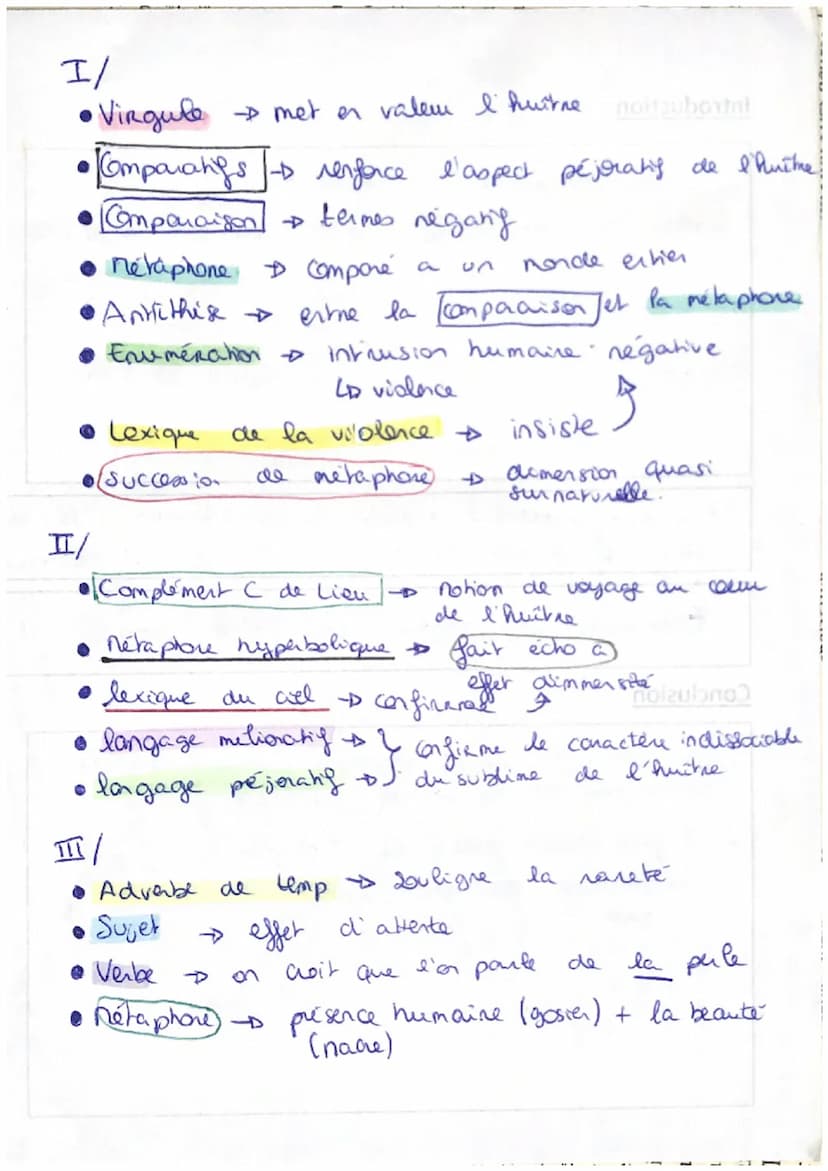 I/
• Virgule → met en valeur l'huître
• Comparatifs → renforce l'aspect péjoratif de l'huître
• Comparaison → termes négatif
• Métaphore → comparé a un monde entier
• Antithèse → entre la comparaison et la métaphore
• Enumération → intrusion humaine négative
↳ violence
• Lexique de la violence → insiste
• Succession de métaphore → dimension quasi
surnaturelle.
II/
• Complément C de Lieu → notion de voyage au coeur
de l'huître
• Métaphore hyperbolique → fait écho a
• lexique du ciel → effet d'immensité
• langage mélioratif → } confirme le caractère indissociable
• langage péjoratif → } du sublime de l'huître
III/
• Adverbe de temp → souligne la rareté
• Sujet → effet d'attente
• Verbe → on croit que l'on parle de la perle
• Métaphore → présence humaine (gosier) + la beauté
(nacre)
Introduction
Conclusion